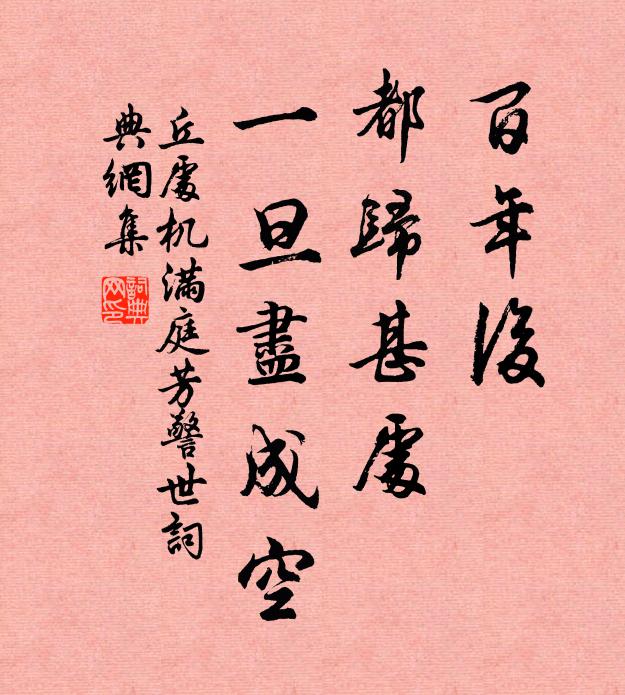 百年後
都歸甚處
一旦盡成空
丘處机滿庭芳警世詞
典網集
詞典網印